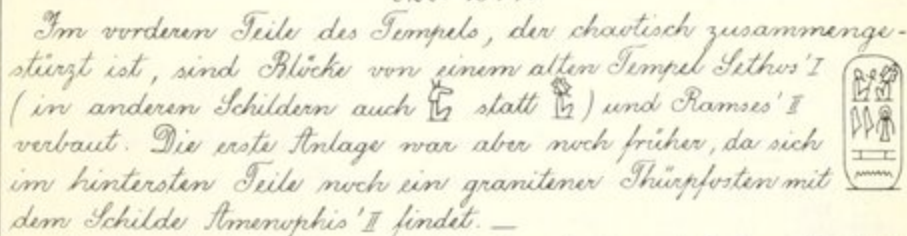 Im vorderen Teile des Tempels, der chaotisch zusammenge-
stürzt ist, sind Blöcke von einem alten Tempel Sethos' I
(in anderen Schildern auch statt ) und Ramses' II
verbaut. Die erste Anlage war aber noch früher, da sich
im hintersten Teile noch ein granitener Thürpfosten mit
dem Schilde Amenophis' II findet. —